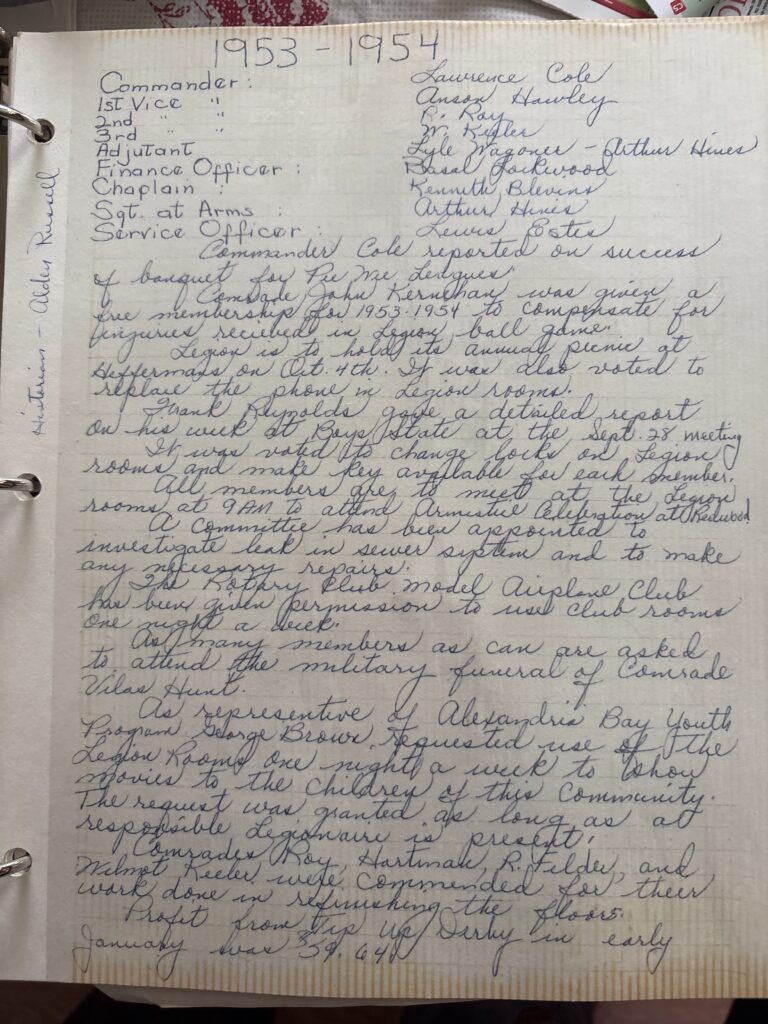 1953 - 1954
Commander: Lawrence Cole
1st Vice " Anson Hawley
2nd " " R. Roy
3rd " " W. Keeler
Adjutant Lyle Wagoner - Arthur Hines
Finance Officer: Basal Lockwood
Chaplain : Kenneth Blevins
Sgt. at Arms : Arthur Hines
Service Officer: Lewis Estes
Historian - Alden Russell
Commander Cole reported on success
of banquet for Pee Wee Leagues.
Comrade John Kernehan was given a
free membership for 1953-1954 to compensate for
injuries recieved in Legion ball game.
Legion is to hold its annual picnic at
Heffermans on Oct. 4th. It was also voted to
replace the phone in Legion rooms.
Frank Reynolds gave a detailed report
on his week at Boys State at the Sept. 28 meeting
It was voted to change locks on Legion
rooms and make key available for each member.
All members are to meet at the Legion
rooms at 9 AM to attend Armistice Celebration at Redwood
A committee has been appointed to
investigate leak in sewer system and to make
any necessary repairs.
The Rotary Club Model Airplane Club
has been given permission to use club rooms
one night a week.
As many members as can are asked
to attend the military funeral of Comrade
Vilas Hunt.
As representive of Alexandria Bay Youth
Program George Brown requested use of the
Legion Rooms one night a week to show
movies to the children of this community.
The request was granted as long as a
responsible Legionaire is present.
Comrades Roy, Hartman, R. Filder, and
Wilmot Keeler were commended for their
work done in refinishing the floors.
Profit from Tip Up Derby in early
January was $59.64.